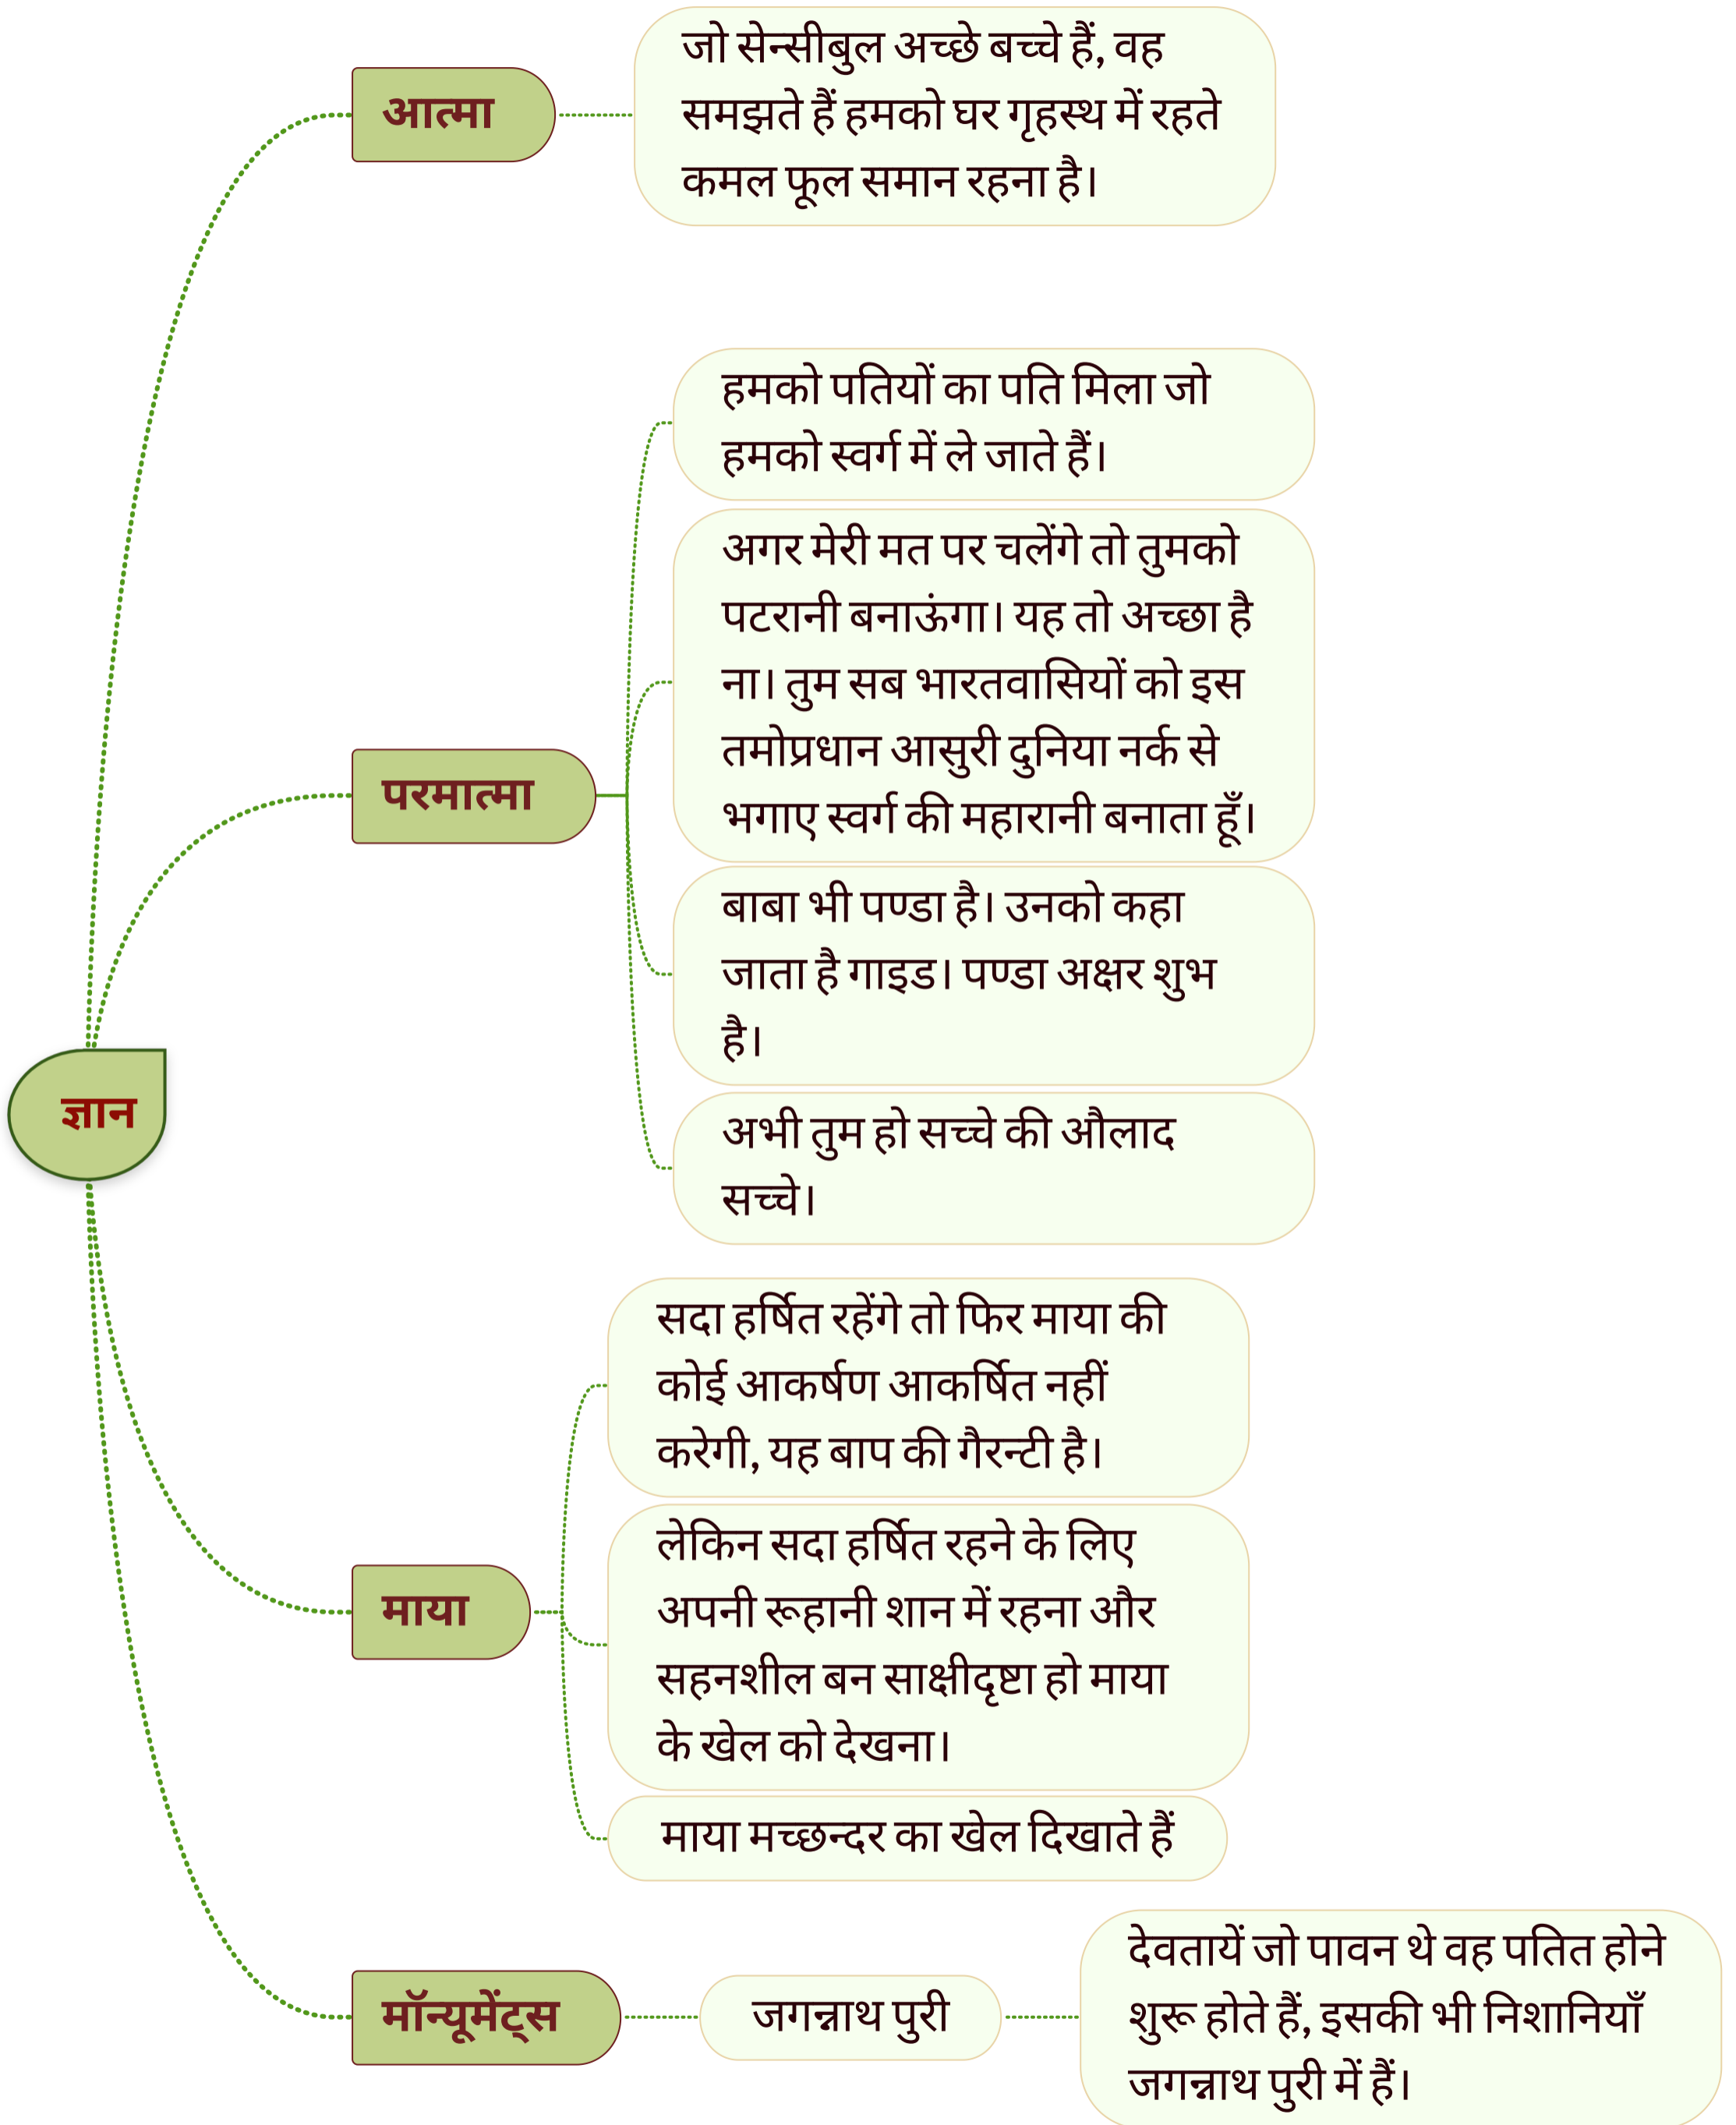 आत्मा
जो सेन्सीबुल अच्छे बच्चे हैं, वह
समझते हैं हमको घर गृहस्थ में रहते
कमल फूल समान रहना है।
हमको पतियों का पति मिला जो
हमको स्वर्ग में ले जाते हैं।
अगर मेरी मत पर चलेंगे तो तुमको
पटरानी बनाऊंगा। यह तो अच्छा है
ना। तुम सब भारतवासियों को इस
तमोप्रधान आसुरी दुनिया नर्क से
भगाए स्वर्ग की महारानी बनाता हूँ।
परमात्मा
बाबा भी पण्डा है। उनको कहा
जाता है गाइड। पण्डा अक्षर शुभ
है।
अभी तुम हो सच्चे की औलाद
सच्चे।
ज्ञान
सदा हर्षित रहेंगे तो फिर माया की
कोई आकर्षण आकर्षित नहीं
करेगी, यह बाप की गैरन्टी है।
लेकिन सदा हर्षित रहने के लिए
अपनी रूहानी शान में रहना और
सहनशील बन साक्षीदृष्टा हो माया
के खेल को देखना।
माया
माया मच्छन्दर का खेल दिखाते हैं
मॉन्यूमेंट्स
जगन्नाथ पुरी
देवतायें जो पावन थे वह पतित होने
शुरू होते हैं, इसकी भी निशानियाँ
जगन्नाथ पुरी में हैं।